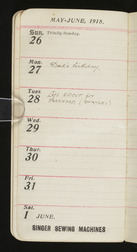 MAY-JUNE, 1918.
SUN. Trinity Sunday.
26
Mon.
27 Dad's birthday.
Tues.
28
Wed.
29
Thur.
30
Fri.
31
Sat.
1 JUNE.
SINGER SEWING MACHINES